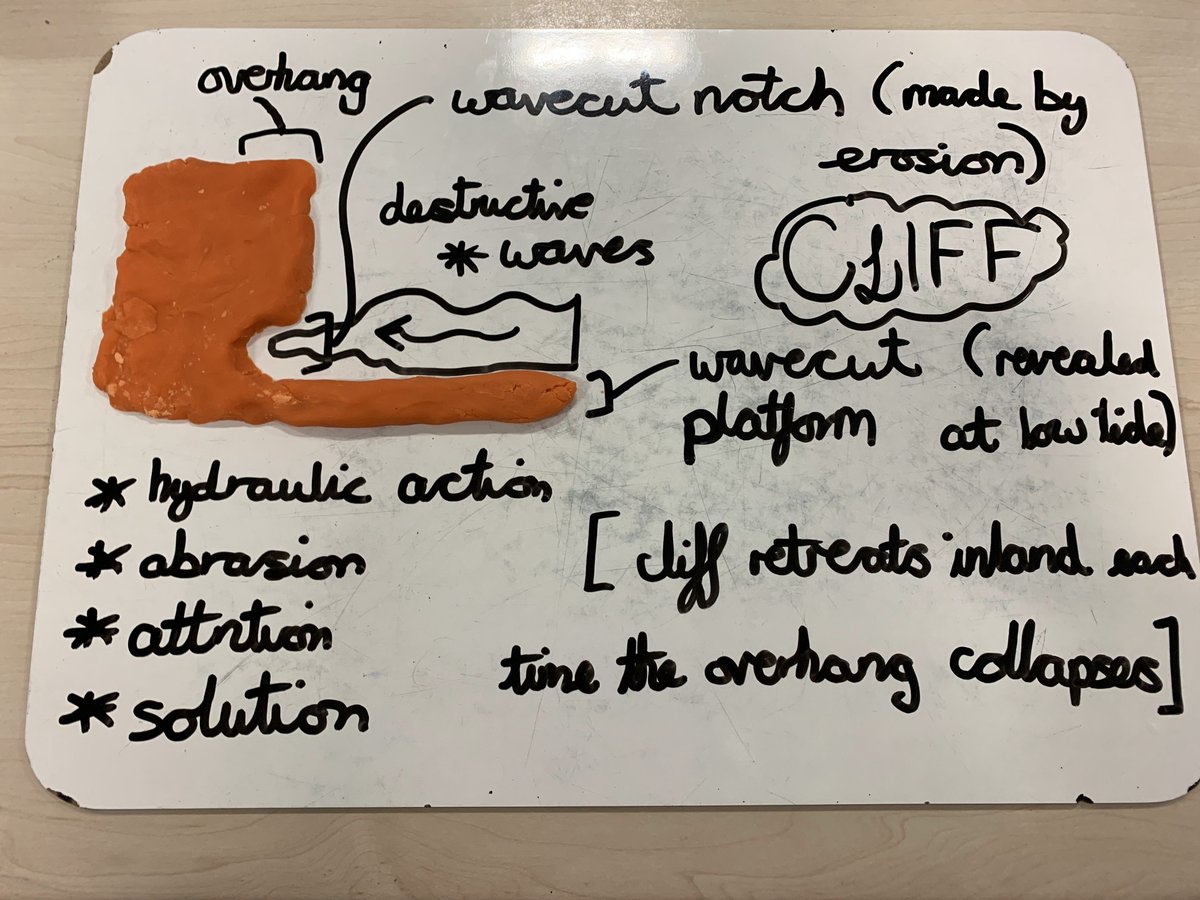 overhang
wavecut notch (made by
erosion)
destructive
* waves
CLIFF
wavecut (revealed
platform at low tide)
* hydraulic action
* abrasion
* attrition
* solution
[cliff retreats inland each
time the overhang collapses]